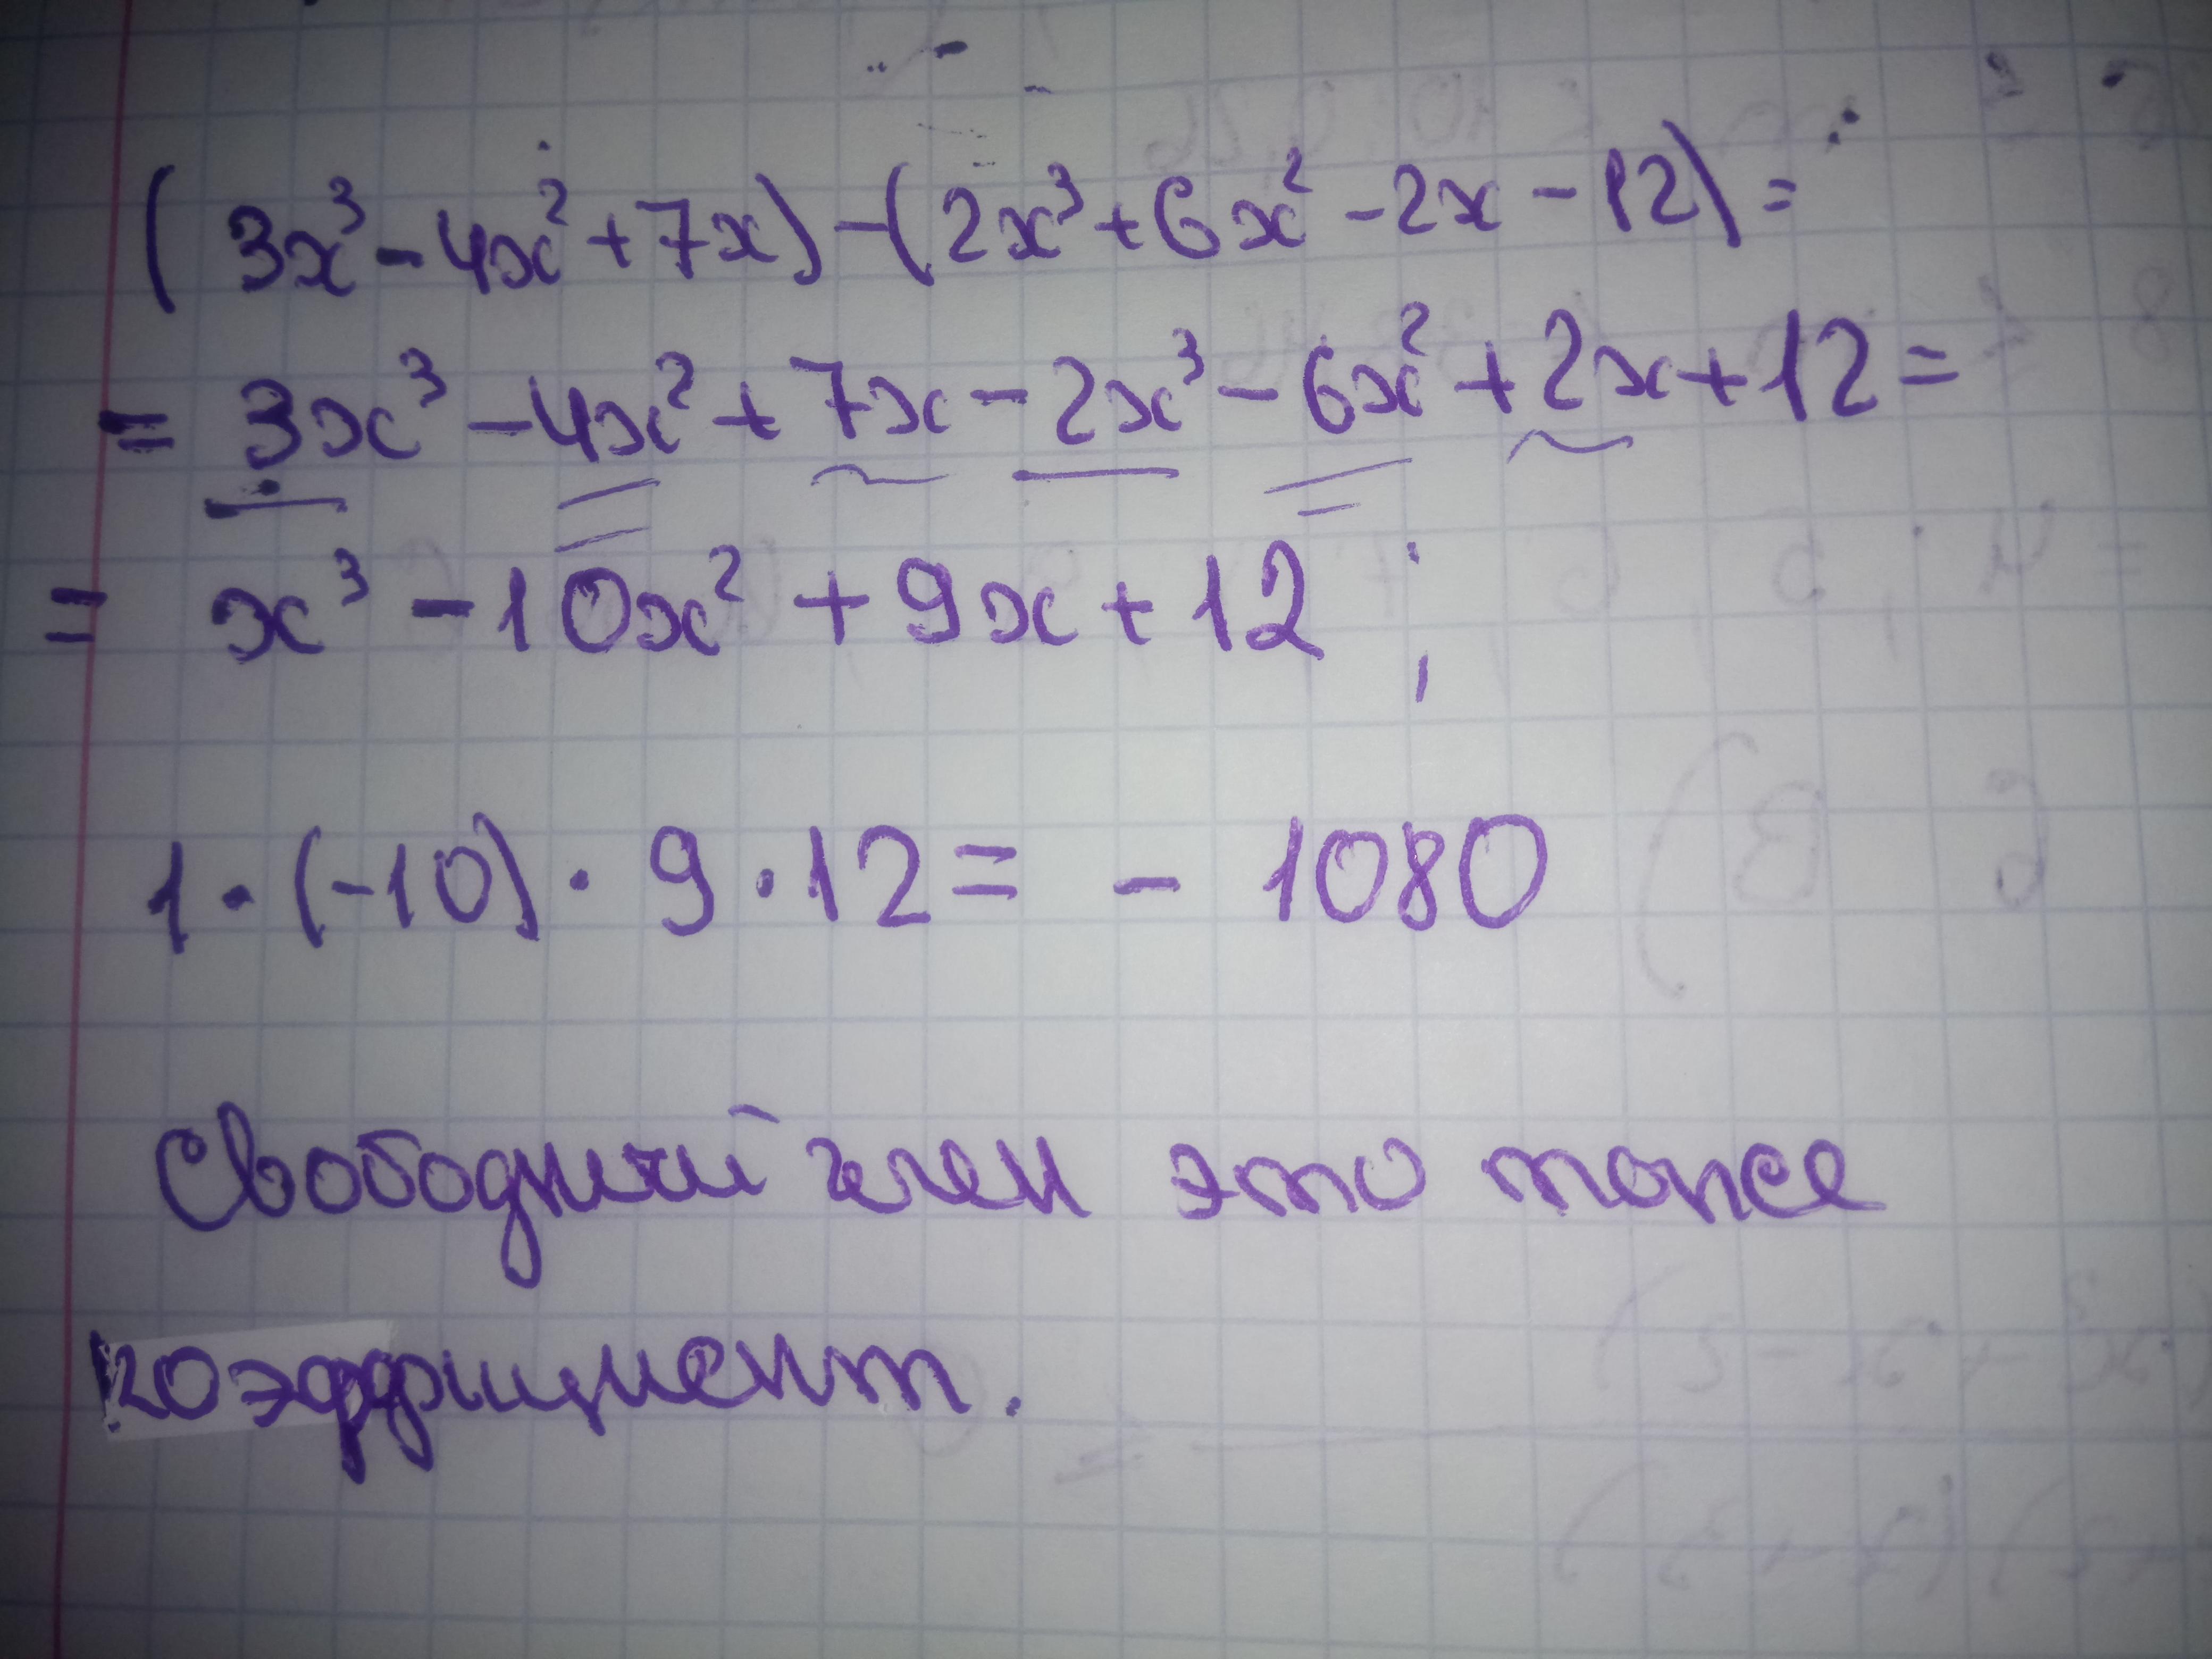 (3x³-4x²+7x)-(2x³+6x²-2x-12)=
=3x³-4x²+7x-2x³-6x²+2x+12=
=x³-10x²+9x+12;
1·(-10)·9·12=-1080
Свободный член это тоже
коэффициент.